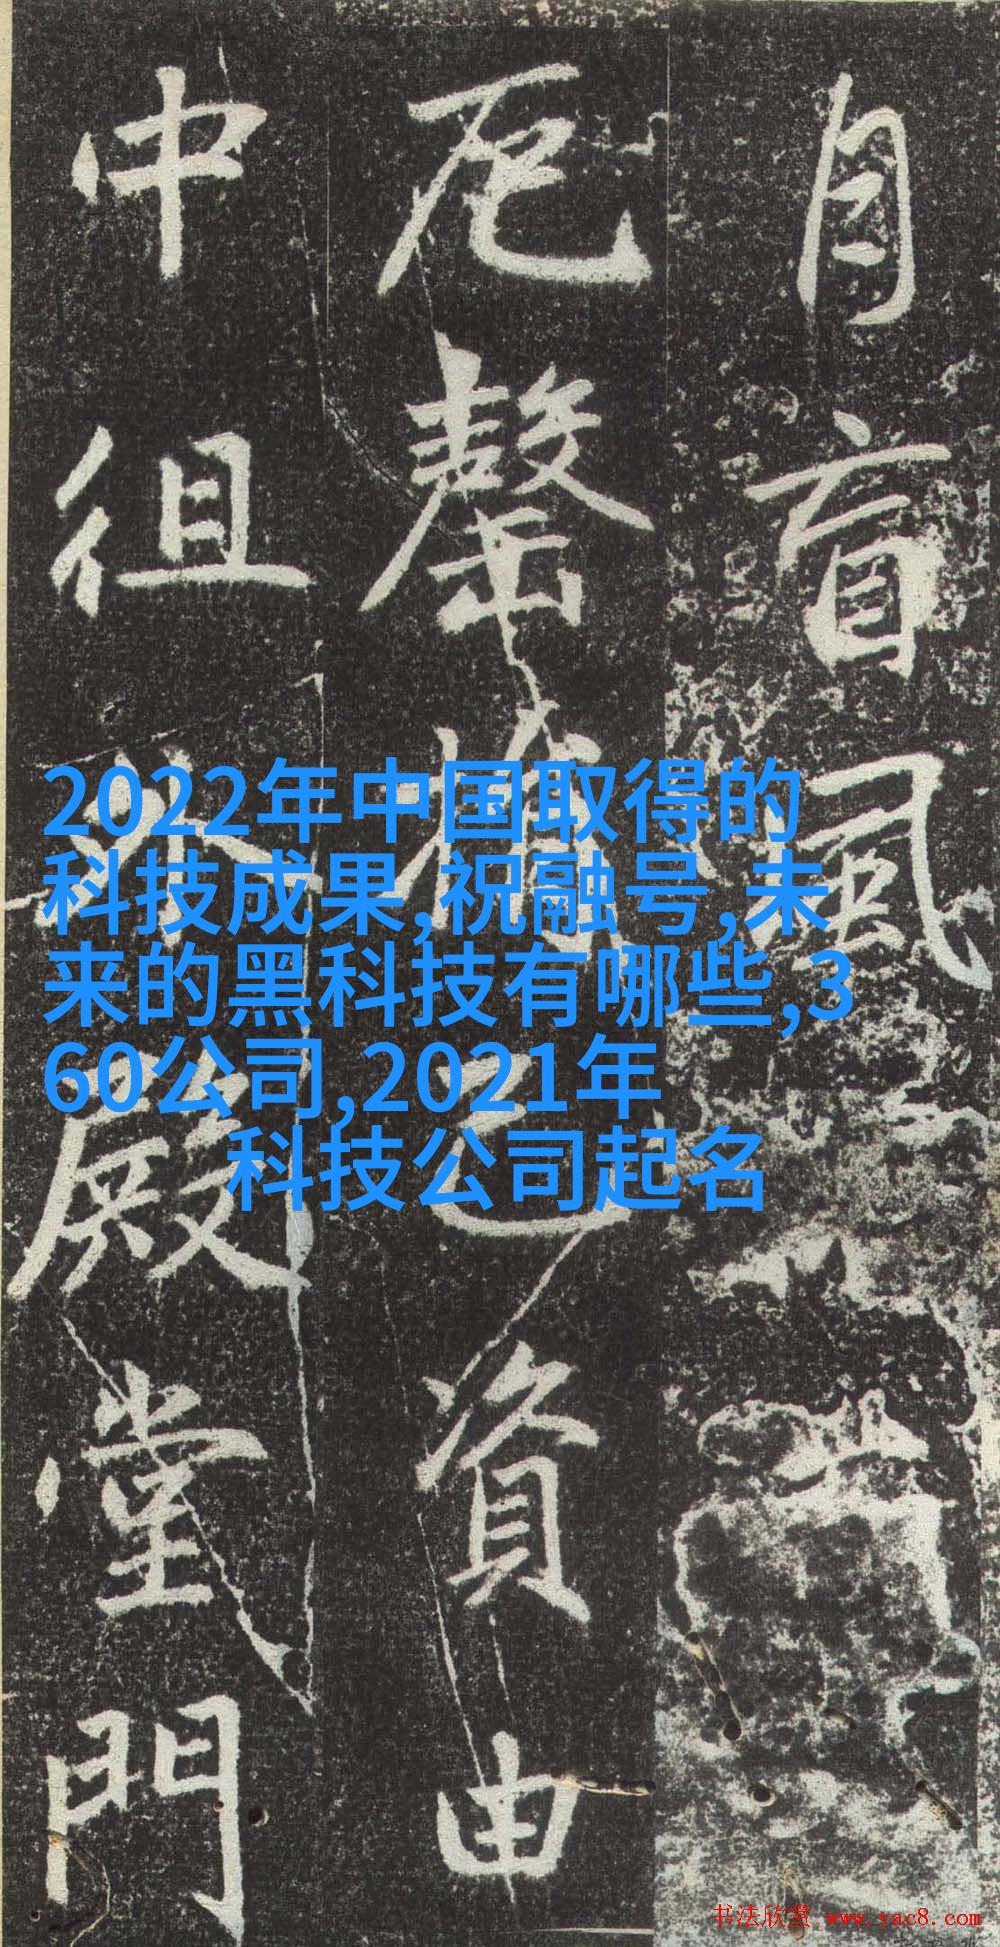 自盲風
卮罄
資由
中徂
殿堂門
2022年中国取得的
科技成果,祝融号,未
来的黑科技有哪些,3
60公司,2021年
科技公司起名
书法欣赏 www.yac8.com